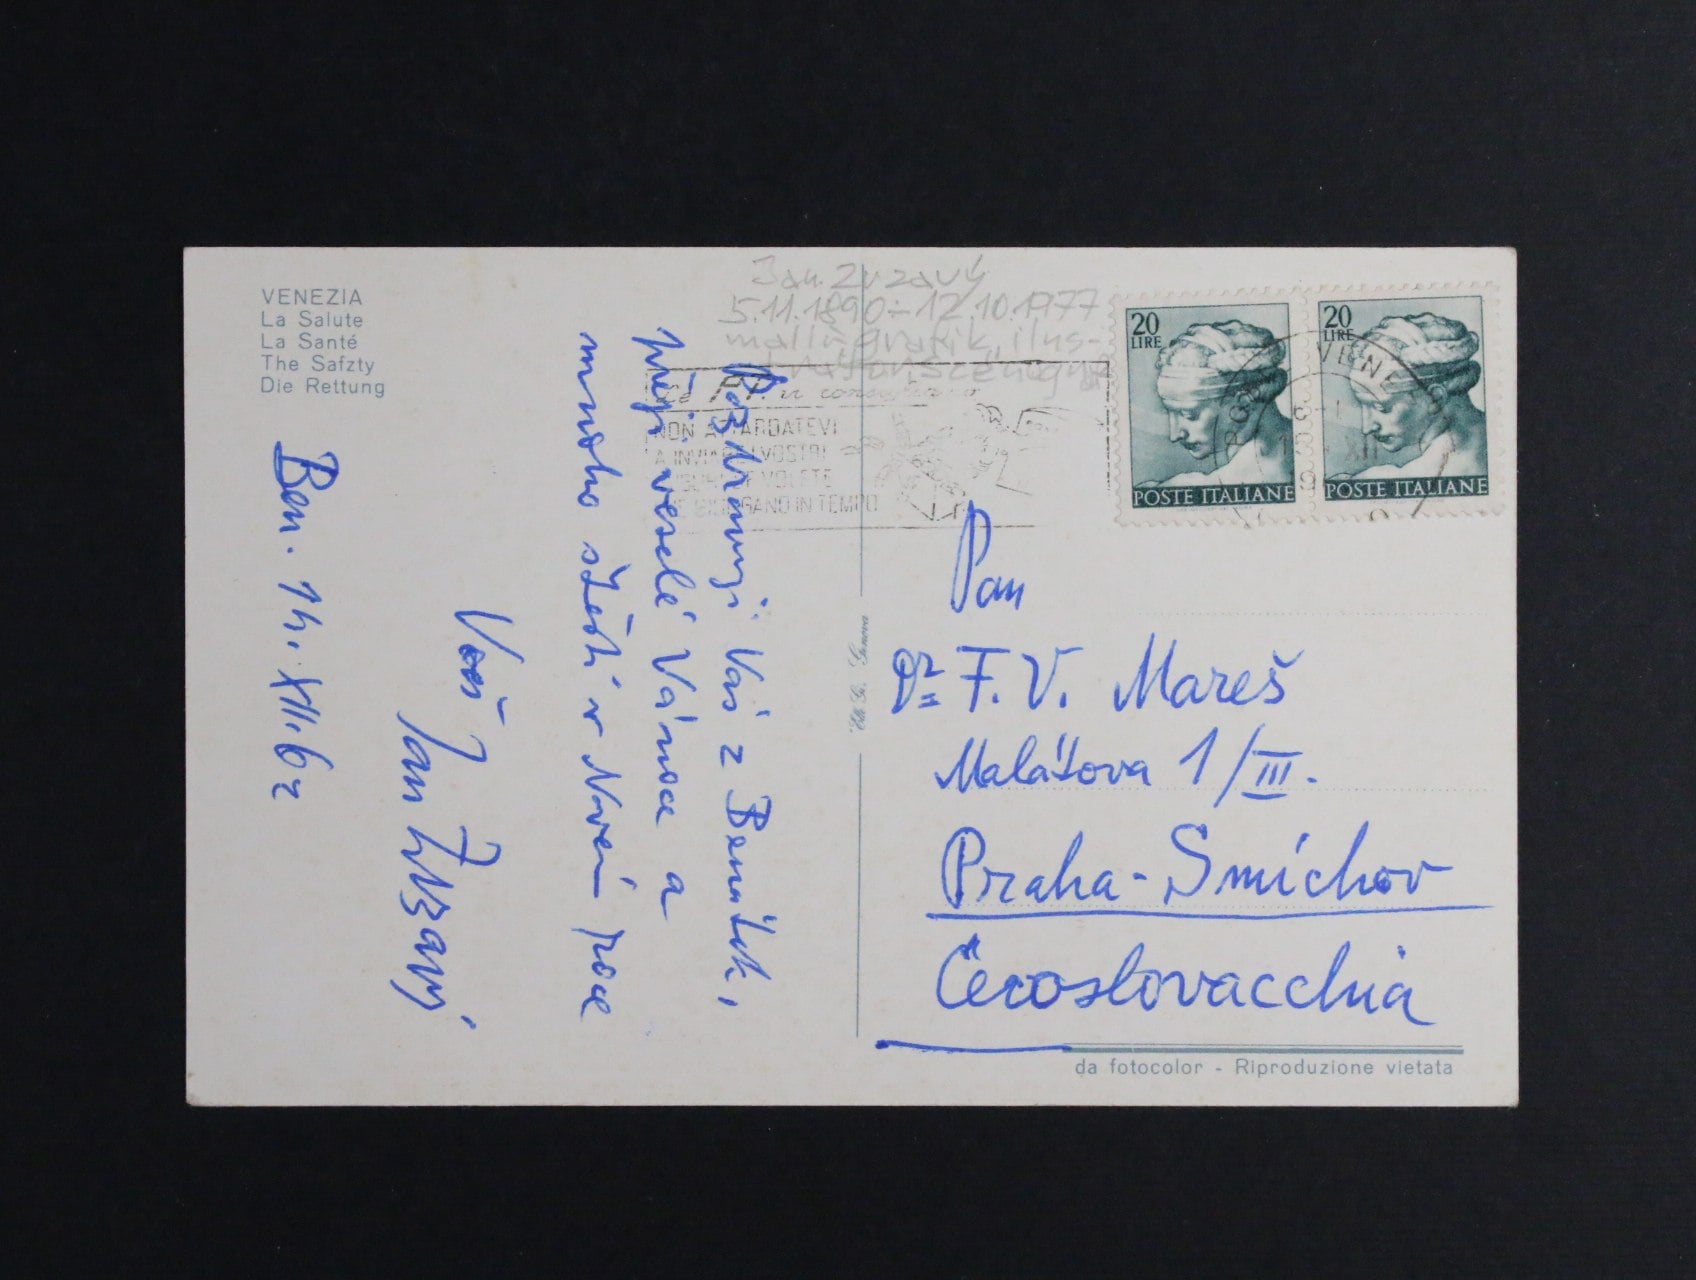 VENEZIA
La Salute
La Santé
The Safzty
Die Rettung
Jan Zrzavý
5.11.1890 – 12.10.1977
malíř, grafik, ilus-
Le P.T. vi consigliano
NON ATTARDATEVI
A INVIARE I VOSTRI
AUGURI SE VOLETE
CHE GIUNGANO IN TEMPO
20
LIRE
POSTE ITALIANE
20
LIRE
POSTE ITALIANE
VENEZIA
Pozdravuji Vás z Benátek,
přeji veselé Vánoce a
mnoho štěstí v Novém roce
Váš
Jan Zrzavý
Ben. 14. XII. 62
Genova
Pan
Dr F. V. Mareš
Malátova 1/III.
Praha-Smíchov
Cecoslovacchia
da fotocolor - Riproduzione vietata